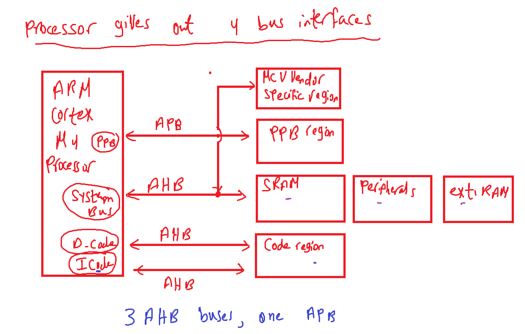 Processor gives out 4 bus interfaces
ARM
Cortex
M4
PPB
Processor
System
Bus
D_Code
ICode
APB
AHB
AHB
AHB
MCU Vendor
Specific region
PPB region
SRAM
Peripherals
ext. RAM
Code region
3 AHB buses, one APB